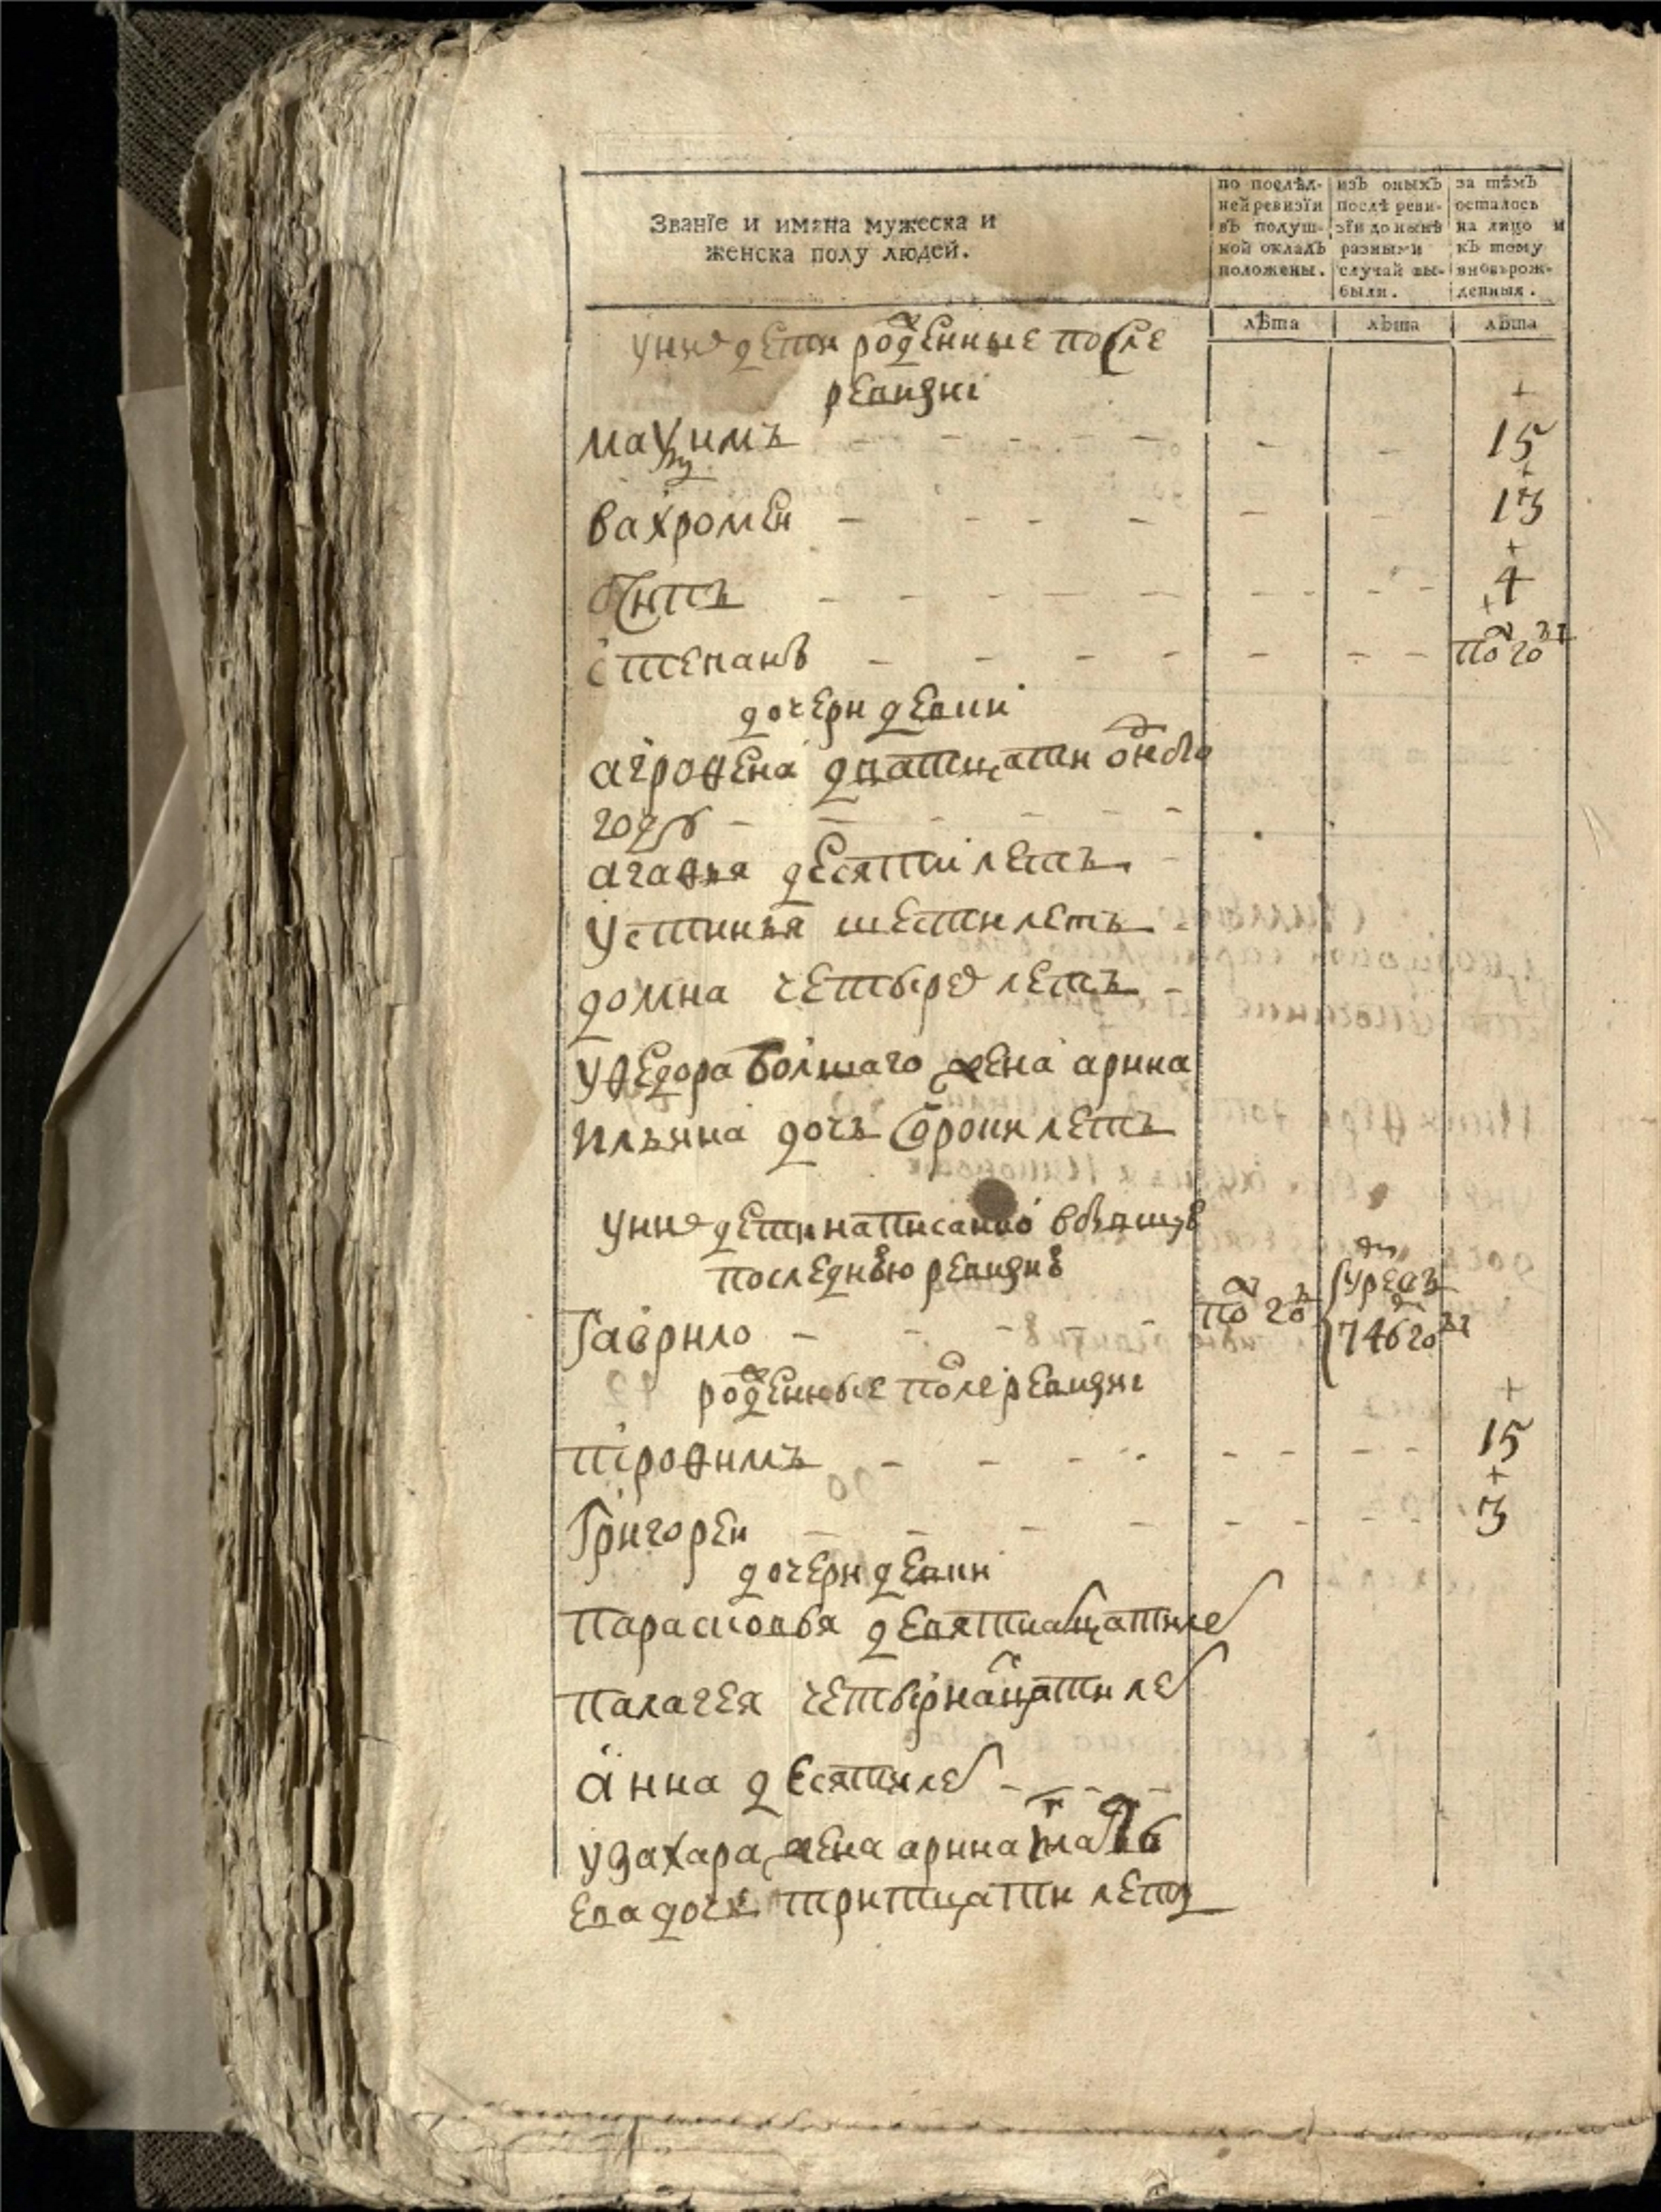 Званїе и имяна мужеска и
женска полу людей.
по послѣд-
ней ревизїи
въ подуш-
ной окладъ
положены.
изъ оныхъ
послѣ реви-
зїи до нынѣ
разными
случаи вы-
были.
за тѣмъ
осталось
на лицо и
къ тому
вновьрож-
денныя.
лѣта
лѣта
лѣта
у них дети рожденные после
ревизиі
маѯимъ 15
вахромеи 13
4
степанъ по год
дочери девки
агрофена дватцати одного
году
агафья десяти летъ
устинья шести летъ
домна четырех летъ
у федора болшаго жена арина
ильина дочь сорока летъ
у них дети написанно
последнюю ревизию
Гаврило по год умре въ 746 году
рожденные после ревизиі
трофимъ 15
Григореи 3
дочери девки
парасковья девятнатцати лет
палагея четырнатцати лет
анна десяти лет
у захара жена арина
ева дочь тритцати летъ